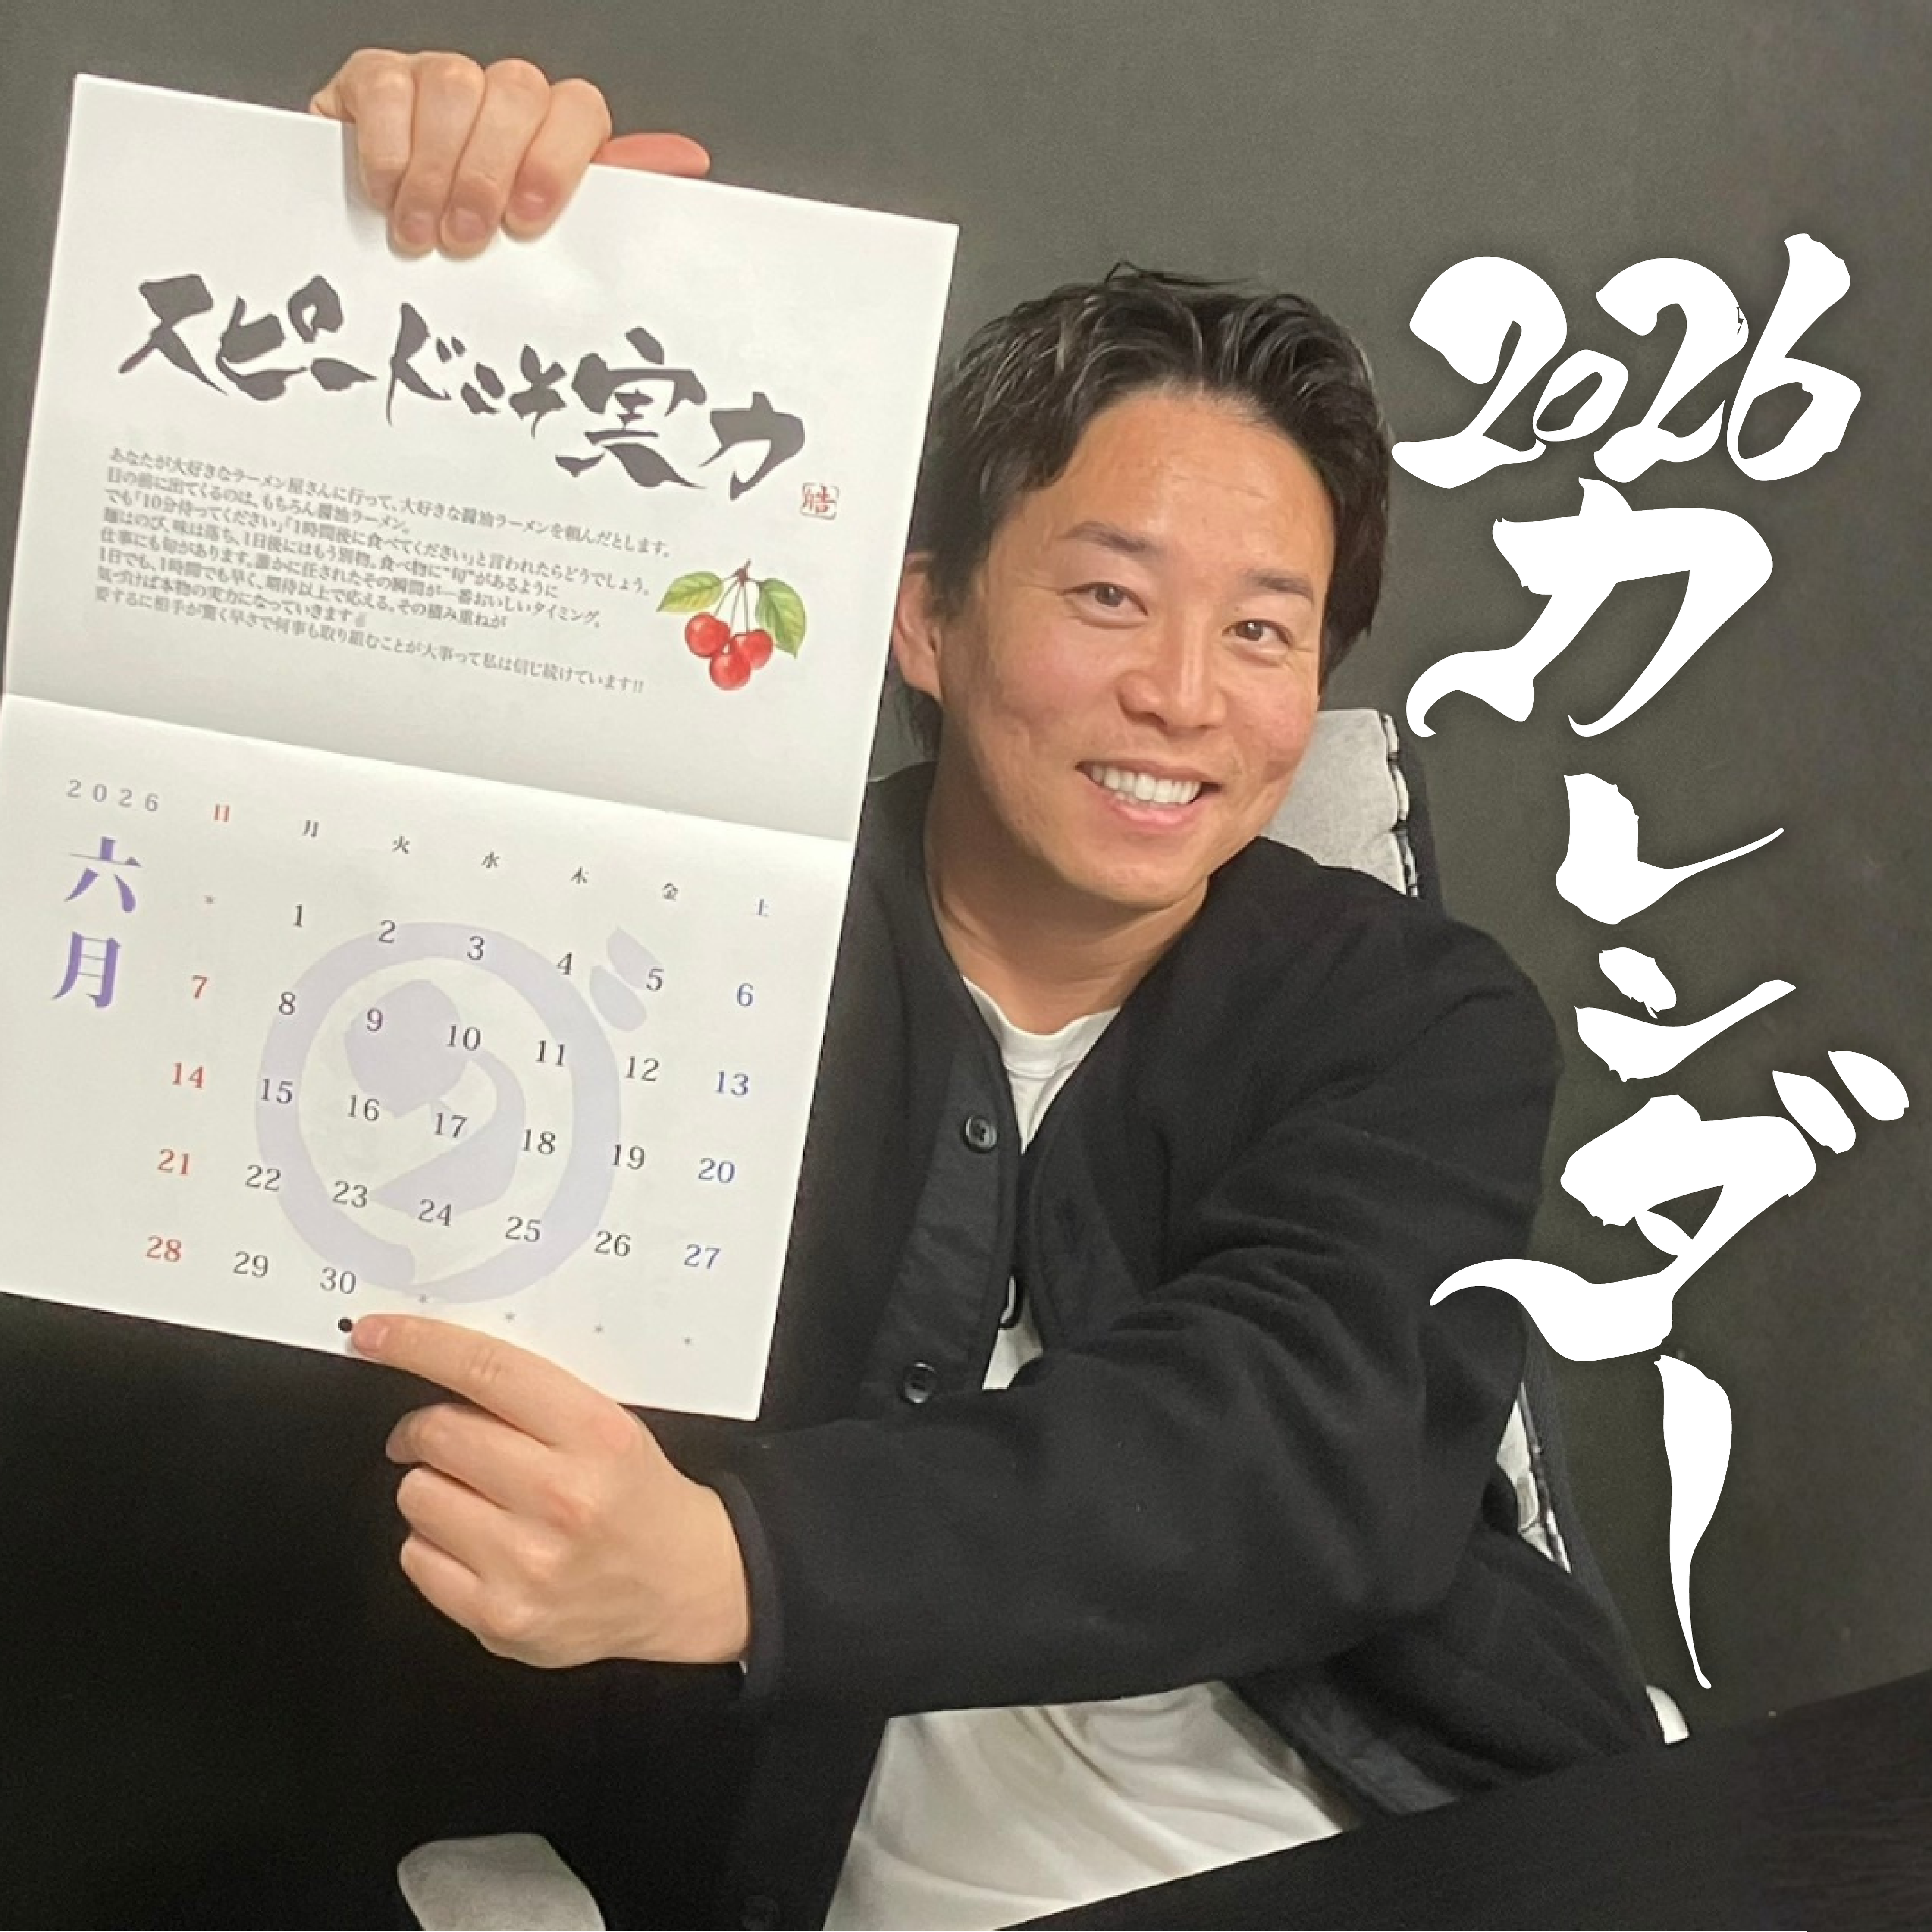 スピードこそ実力
皓
あなたが大好きなラーメン屋さんに行って、大好きな醤油ラーメンを頼んだとします。
目の前に出てくるのは、もちろん醤油ラーメン。
でも「10分待ってください」「1時間後に食べてください」と言われたらどうでしょう。
麺はのび、味は落ち、1日後にはもう別物。食べ物に“旬”があるように
仕事にも旬があります。誰かに任されたその瞬間が一番おいしいタイミング。
1日でも、1時間でも早く、期待以上で応える。その積み重ねが
気づけば本物の実力になっていきます✌
要するに相手が驚く早さで何事も取り組むことが大事って私は信じ続けています!!
2026
六月
日 月 火 水 木 金 土
* 1 2 3 4 5 6
7 8 9 10 11 12 13
14 15 16 17 18 19 20
21 22 23 24 25 26 27
28 29 30 * * * *
2026
カレンダー